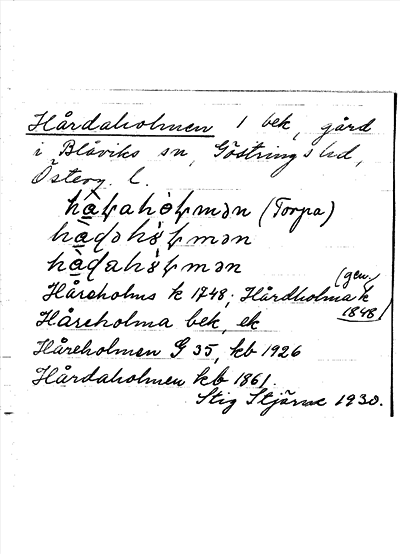 Hårdaholmen 1 bek, gård
i Blåviks sn, Göstrings hd,
Österg. l.
(Torpa)
Håreholms k 1748; Hårdholma k
(gen.) 1848
Håreholma bek, ek
Håreholmen G 35, kb 1926
Hårdaholmen kb 1861.
Stig Stjärne 1930.